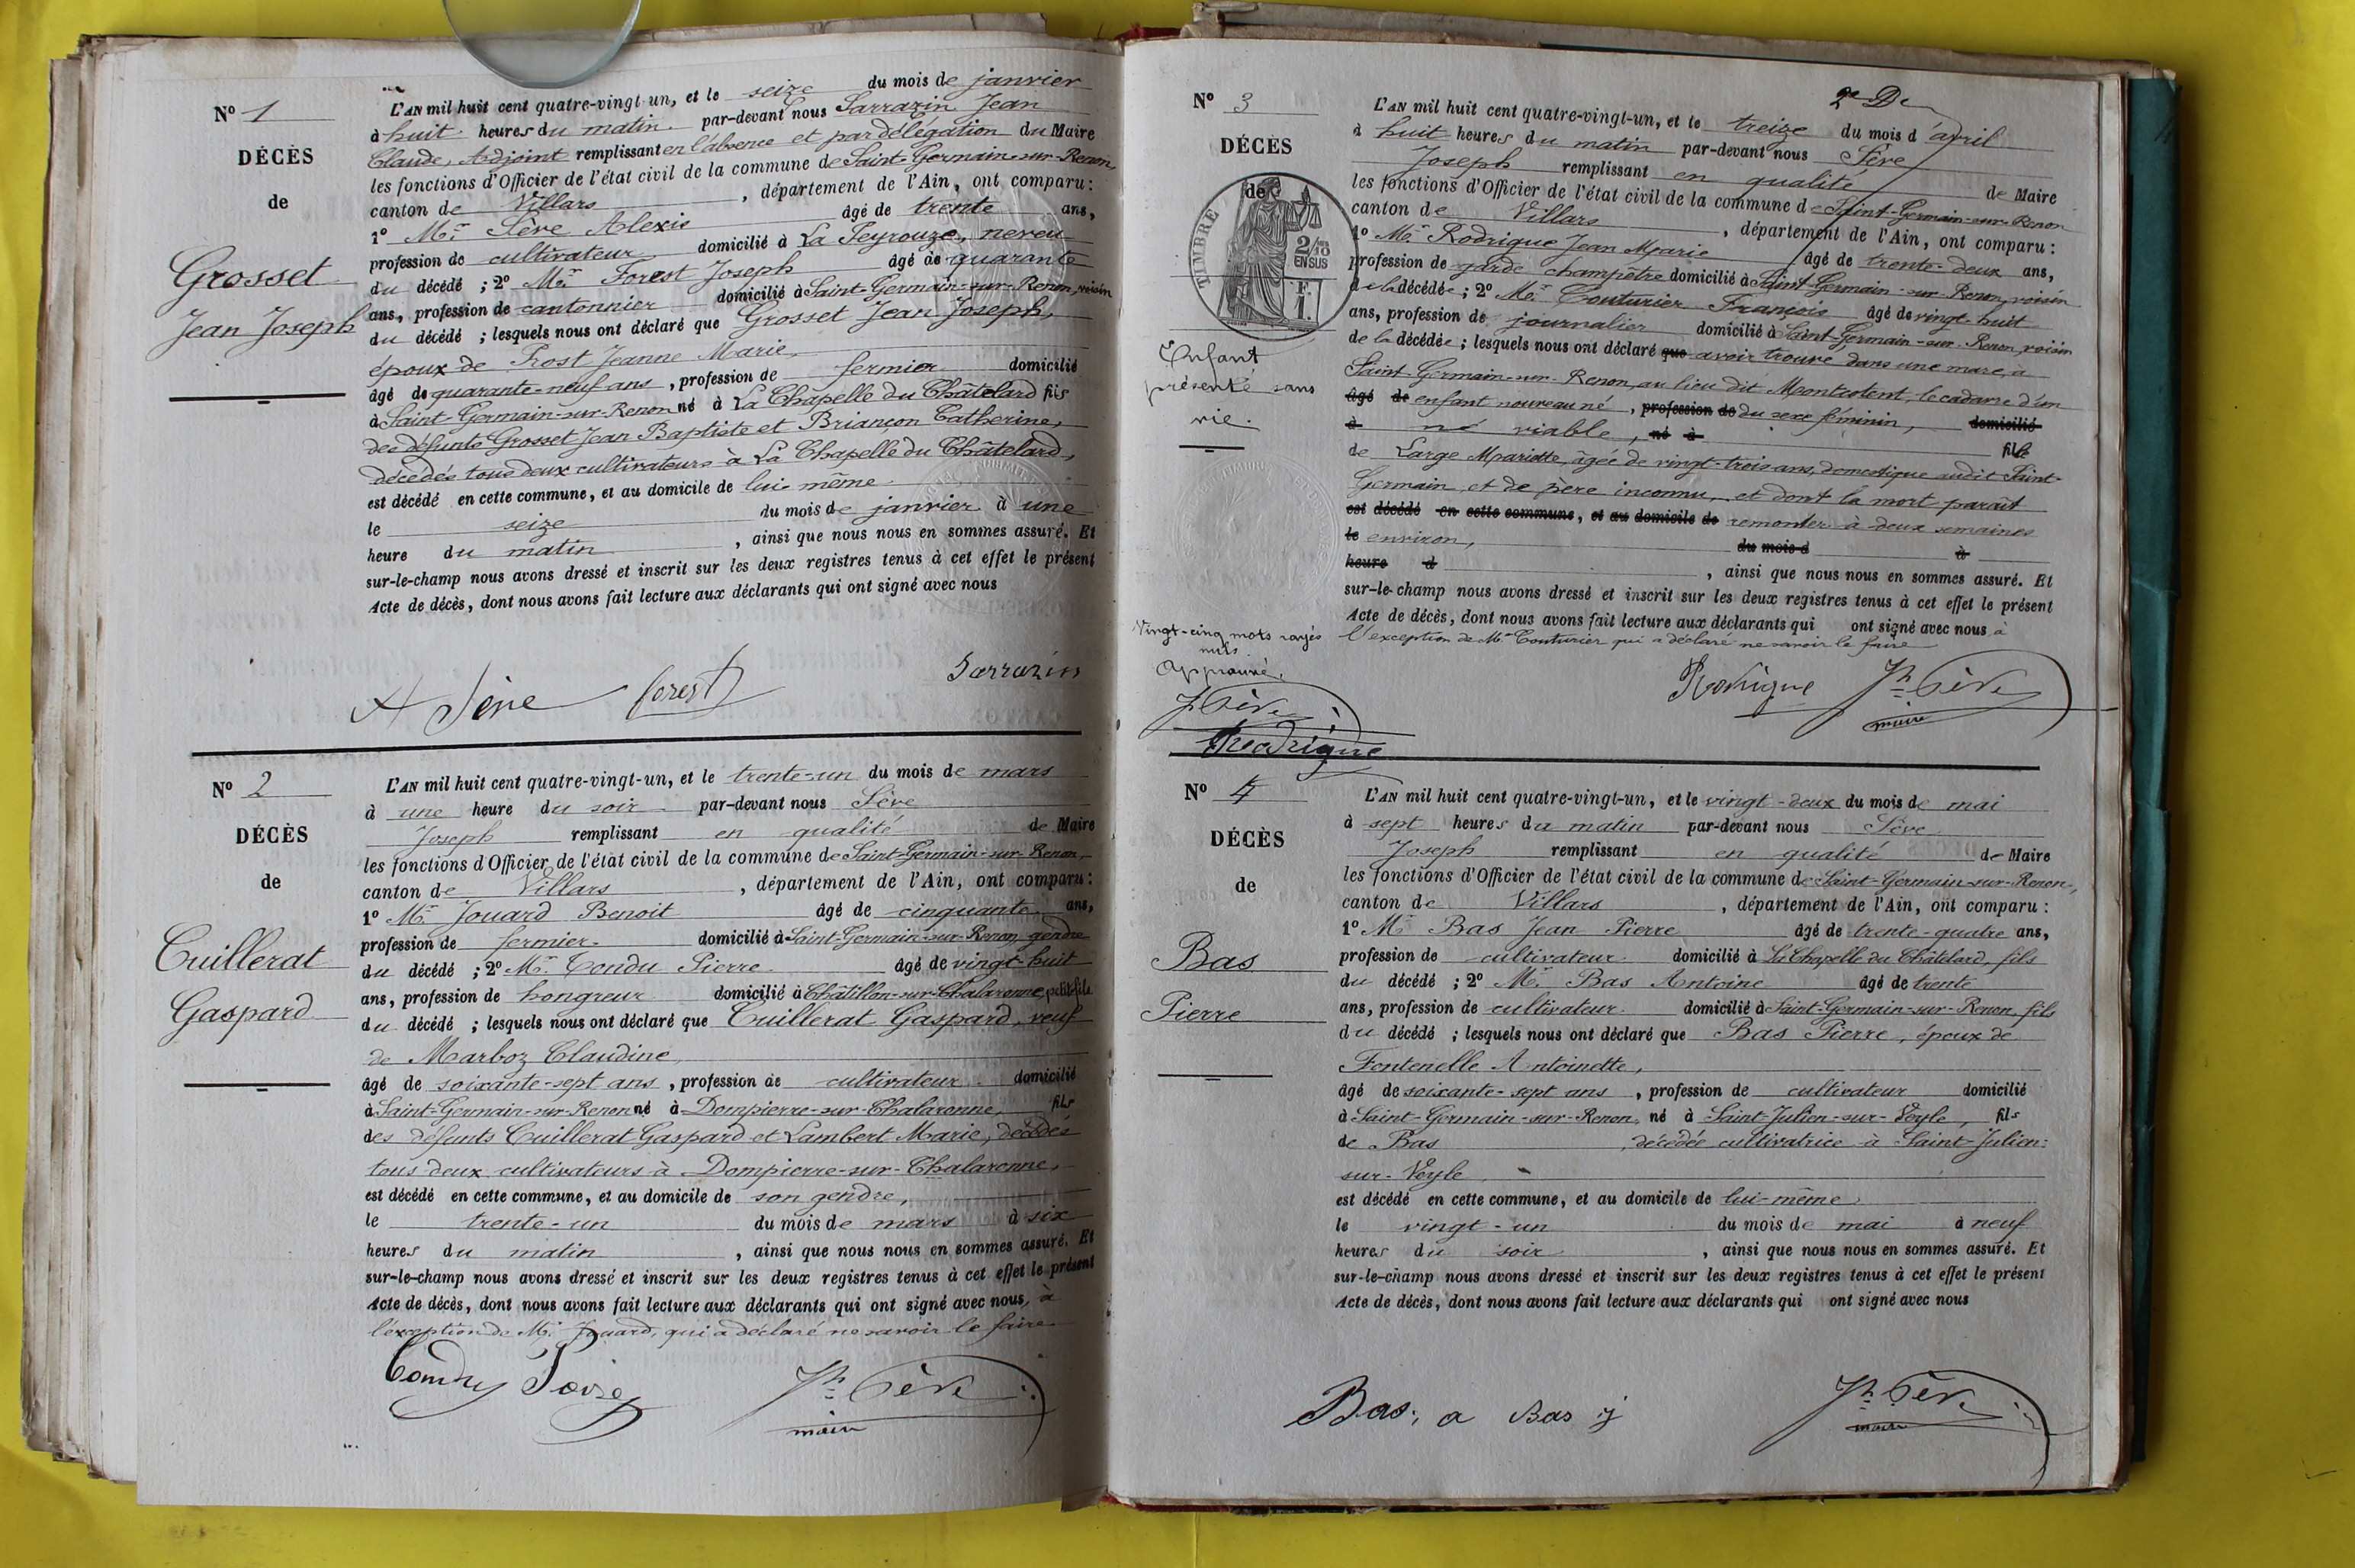 N° 1
DÉCÈS
de
Grosset
Jean Joseph
L'AN mil huit cent quatre-vingt-un, et le seize du mois de janvier
à huit heures du matin par-devant nous Sarrazin Jean
Claude, Adjoint remplissant en l'absence et par délégation du Maire
les fonctions d'Officier de l'état civil de la commune de Saint-Germain-sur-Renon,
canton de Villars, département de l'Ain, ont comparu :
1° Mr Sève Alexis âgé de trente ans,
profession de cultivateur domicilié à La Peyrouze, neveu
du décédé ; 2° Mr Forest Joseph âgé de quarante
ans, profession de cantonnier domicilié à Saint-Germain-sur-Renon, voisin
du décédé ; lesquels nous ont déclaré que Grosset Jean Joseph,
époux de Prost Jeanne Marie,
âgé de quarante-neuf ans, profession de fermier domicilié
à Saint-Germain-sur-Renon né à La Chapelle du Châtelard fils
des défunts Grosset Jean Baptiste et Briançon Catherine,
décédés tous deux cultivateurs à La Chapelle du Châtelard,
est décédé en cette commune, et au domicile de lui-même
le seize du mois de janvier à une
heure du matin, ainsi que nous nous en sommes assuré. Et
sur-le-champ nous avons dressé et inscrit sur les deux registres tenus à cet effet le présent
Acte de décès, dont nous avons fait lecture aux déclarants qui ont signé avec nous
A Sève forest Sarrazin
N° 2
DÉCÈS
de
Cuillerat
Gaspard
L'AN mil huit cent quatre-vingt-un, et le trente-un du mois de mars
à une heure du soir par-devant nous Sève
Joseph remplissant en qualité de Maire
les fonctions d'Officier de l'état civil de la commune de Saint-Germain-sur-Renon,
canton de Villars, département de l'Ain, ont comparu :
1° Mr Jouard Benoit âgé de cinquante ans,
profession de fermier domicilié à Saint-Germain-sur-Renon, gendre
du décédé ; 2° Mr Condu Pierre âgé de vingt-huit
ans, profession de hongreur domicilié à Châtillon-sur-Chalaronne, petit-fils
du décédé ; lesquels nous ont déclaré que Cuillerat Gaspard, veuf
de Marboz Claudine
âgé de soixante-sept ans, profession de cultivateur domicilié
à Saint-Germain-sur-Renon né à Dompierre-sur-Chalaronne, fils
des défunts Cuillerat Gaspard et Lambert Marie, décédés
tous deux cultivateurs à Dompierre-sur-Chalaronne,
est décédé en cette commune, et au domicile de son gendre,
le trente-un du mois de mars à six
heures du matin, ainsi que nous nous en sommes assuré. Et
sur-le-champ nous avons dressé et inscrit sur les deux registres tenus à cet effet le présent
Acte de décès, dont nous avons fait lecture aux déclarants qui ont signé avec nous, à
l'exception de Mr Jouard, qui a déclaré ne savoir le faire.
Jh Sève
maire
N° 3
DÉCÈS
de
TIMBRE
2/10
EN SUS
F.
1.
Enfant
présenté sans
vie.
Vingt-cinq mots rayés
nuls.
Approuvé.
Jh Sève
Rodrigue
2e De
L'AN mil huit cent quatre-vingt-un, et le treize du mois d'avril
à huit heures du matin par-devant nous Sève
Joseph remplissant en qualité de Maire
les fonctions d'Officier de l'état civil de la commune de Saint-Germain-sur-Renon
canton de Villars, département de l'Ain, ont comparu :
1° Mr Rodrigue Jean Marie âgé de trente-deux ans,
profession de garde champêtre domicilié à Saint-Germain-sur-Renon, voisin
de la décédée ; 2° Mr Couturier François âgé de vingt-huit
ans, profession de journalier domicilié à Saint-Germain-sur-Renon, voisin
de la décédée ; lesquels nous ont déclaré que avoir trouvé dans une mare, à
Saint-Germain-sur-Renon, au lieu dit le cadavre d'un
âgé de enfant nouveau né, profession de du sexe féminin, domicilié
à né viable, né à fille
de Large Mariette, âgée de vingt-trois ans, domestique audit Saint-
Germain, et de père inconnu, et dont la mort paraît
est décédé en cette commune, et au domicile de remonter à deux semaines
le environ, du mois d à
heure d, ainsi que nous nous en sommes assuré. Et
sur-le-champ nous avons dressé et inscrit sur les deux registres tenus à cet effet le présent
Acte de décès, dont nous avons fait lecture aux déclarants qui ont signé avec nous à
l'exception de Mr Couturier qui a déclaré ne savoir le faire
Rodrigue Jh Sève
maire
N° 4
DÉCÈS
de
Bas
Pierre
L'AN mil huit cent quatre-vingt-un, et le vingt-deux du mois de mai
à sept heures du matin par-devant nous Sève
Joseph remplissant en qualité de Maire
les fonctions d'Officier de l'état civil de la commune de Saint-Germain-sur-Renon,
canton de Villars, département de l'Ain, ont comparu :
1° Mr Bas Jean Pierre âgé de trente-quatre ans,
profession de cultivateur domicilié à La Chapelle du Châtelard, fils
du décédé ; 2° Mr Bas Antoine âgé de trente
ans, profession de cultivateur domicilié à Saint-Germain-sur-Renon, fils
du décédé ; lesquels nous ont déclaré que Bas Pierre, époux de
Fontenelle Antoinette,
âgé de soixante-sept ans, profession de cultivateur domicilié
à Saint-Germain-sur-Renon, né à Saint-Julien-sur-Veyle, fils
de Bas, décédée cultivatrice à Saint-Julien-
sur-Veyle,
est décédé en cette commune, et au domicile de lui-même
le vingt-un du mois de mai à neuf
heures du soir, ainsi que nous nous en sommes assuré. Et
sur-le-champ nous avons dressé et inscrit sur les deux registres tenus à cet effet le présent
Acte de décès, dont nous avons fait lecture aux déclarants qui ont signé avec nous
Bas, a Bas j Jh Sève
maire